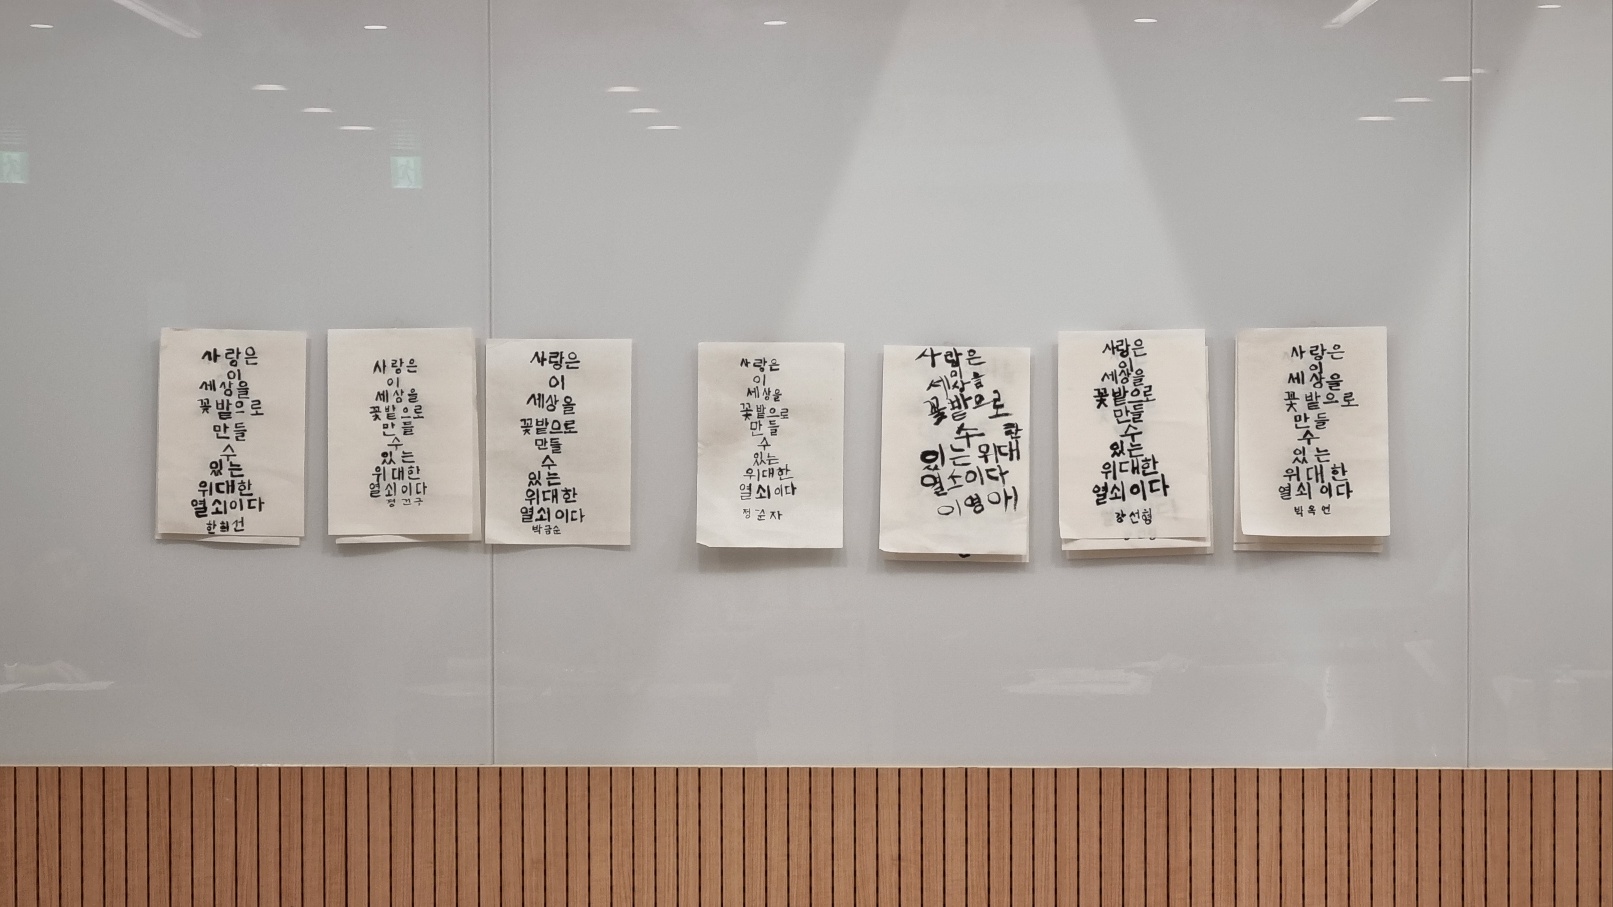 사랑은
이
세상을
꽃밭으로
만들
수
있는
위대한
열쇠이다
한희선
사랑은
이
세상을
꽃밭으로
만들
수
있는
위대한
열쇠이다
정건구
사랑은
이
세상을
꽃밭으로
만들
수
있는
위대한
열쇠이다
박금순
사랑은
이
세상을
꽃밭으로
만들
수
있는
위대한
열쇠이다
정순자
사랑은
이
세상을
꽃밭으로
수
한
있는 위대
열쇠이다
이영애
사랑은
이
세상을
꽃밭으로
만들
수
있는
위대한
열쇠이다
강선형
사랑은
이
세상을
꽃밭으로
만들
수
있는
위대한
열쇠이다
박옥연